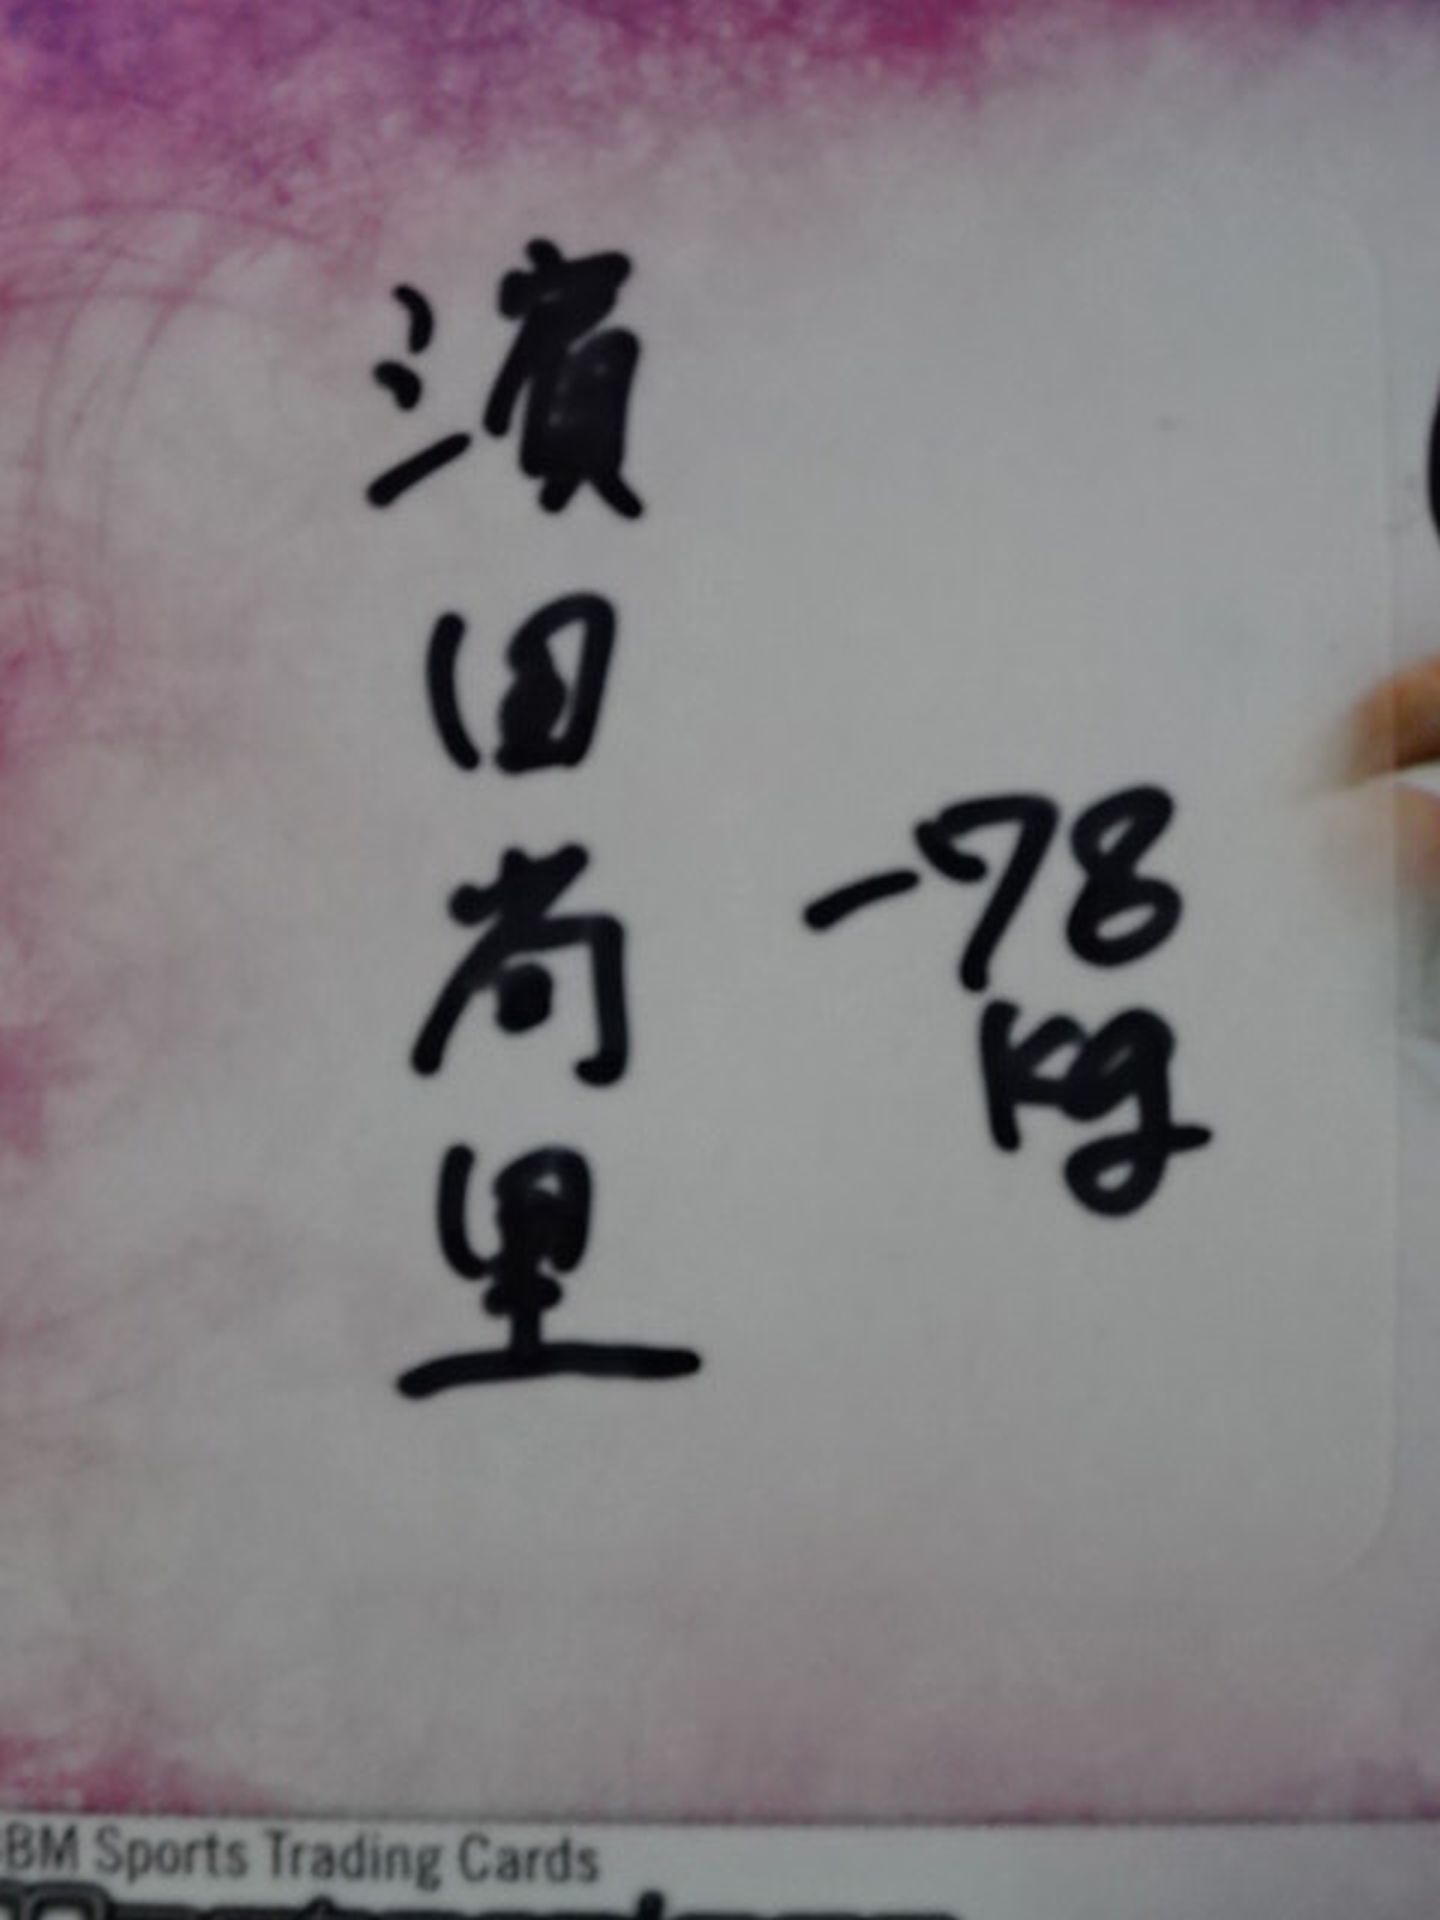 濱田尚里
-78
kg
BM Sports Trading Cards